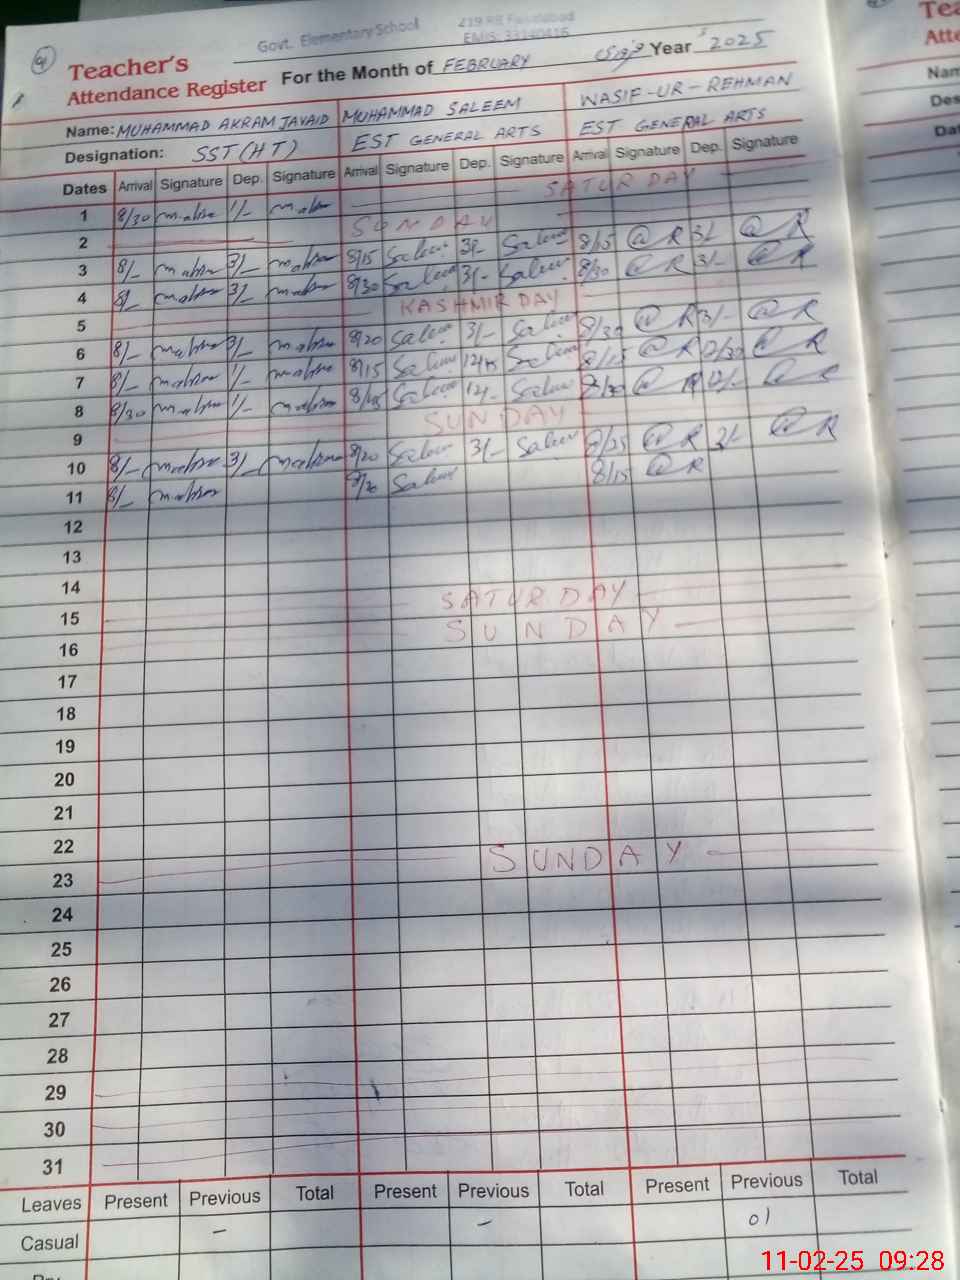 Govt. Elementary School 219 RB Faisalabad
EMIS: 33140416
Teacher's
Attendance Register For the Month of FEBRUARY Year 2025
Name: MUHAMMAD AKRAM JAVAID MUHAMMAD SALEEM WASIF-UR-REHMAN
Designation: SST (HT) EST GENERAL ARTS EST GENERAL ARTS
Dates Arrival Signature Dep. Signature Arrival Signature Dep. Signature Arrival Signature Dep. Signature
1 8/30 1/- SATURDAY
2 SUNDAY
3 8/- 3/- 8/15 Saleem 3/- Saleem 8/15 @R 3/- @R
4 8/- 3/- 8/30 Saleem 3/- Saleem 8/30 @R 3/- @R
5 KASHMIR DAY
6 8/- 3/- 8/20 Saleem 3/- Saleem 8/30 @R 3/- @R
7 8/- 1/- 8/15 Saleem Saleem 8/15 @R 12/30 @R
8 8/30 1/- Saleem 12/- Saleem @R 12/- @R
9 SUNDAY
10 8/- 3/- 8/20 Saleem 3/- Saleem 8/25 @R 3/- @R
11 8/- 8/20 Saleem 8/15 @R
12
13
14
15 SATURDAY
16 SUNDAY
17
18
19
20
21
22
23 SUNDAY
24
25
26
27
28
29
30
31
Leaves Present Previous Total Present Previous Total Present Previous Total
Casual - - 01
11-02-25 09:28
Tea
Atte
Nam
Des
Dat